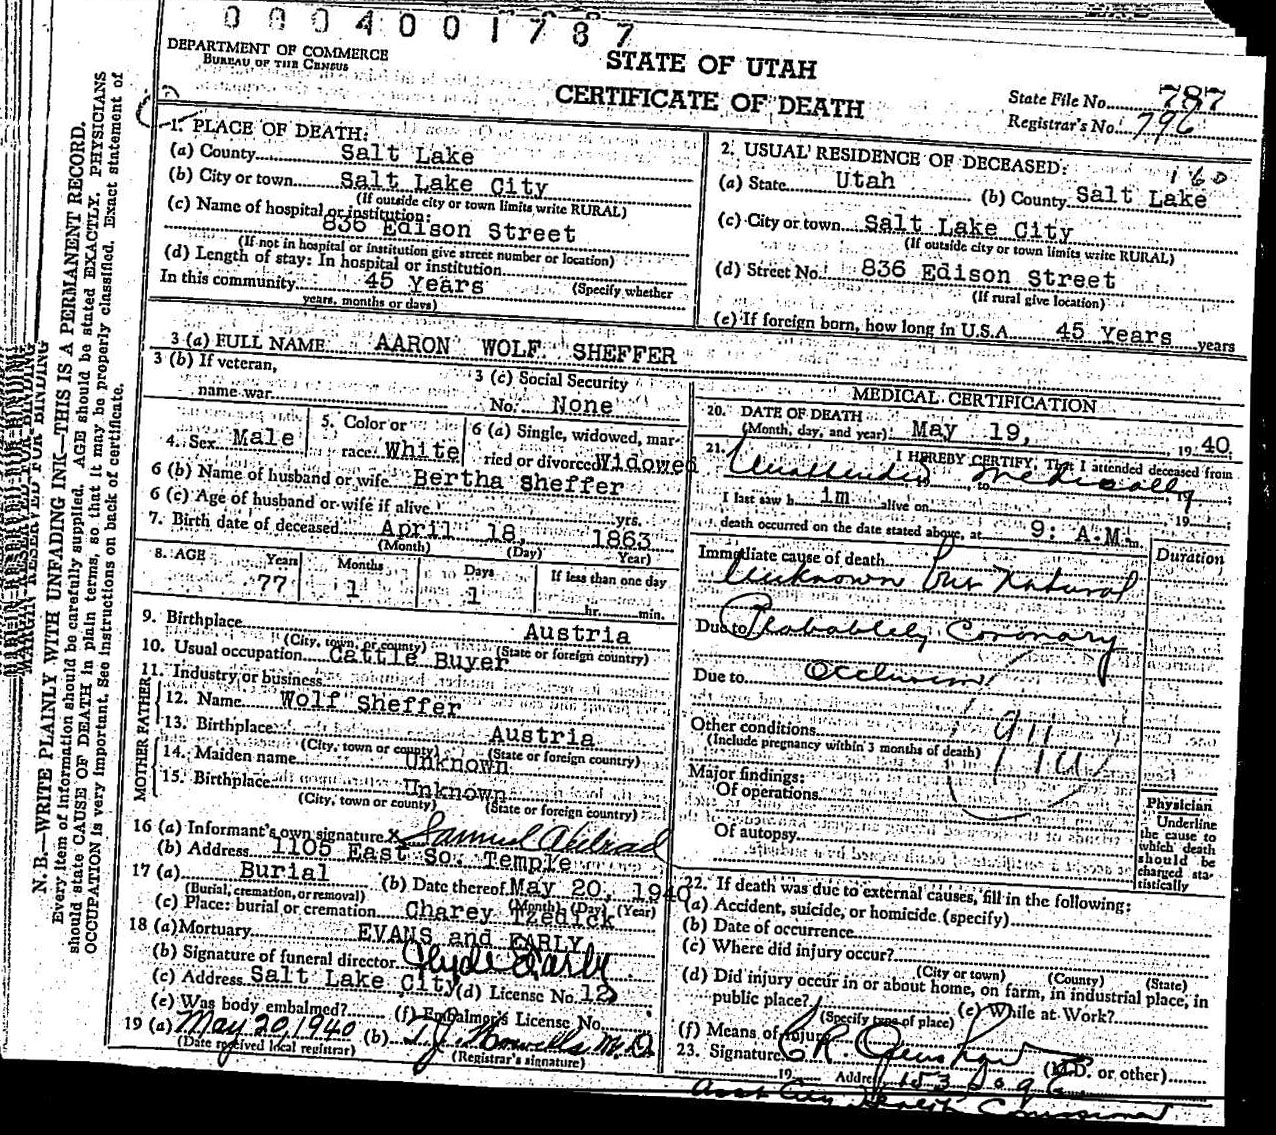 0004001787
DEPARTMENT OF COMMERCE
BUREAU OF THE CENSUS
STATE OF UTAH
CERTIFICATE OF DEATH
State File No. 787
Registrar's No. 796
1. PLACE OF DEATH:
(a) County Salt Lake
(b) City or town Salt Lake City
(If outside city or town limits write RURAL)
(c) Name of hospital or institution:
836 Edison Street
(If not in hospital or institution give street number or location)
(d) Length of stay: In hospital or institution
In this community 45 Years (Specify whether
years, months or days)
2. USUAL RESIDENCE OF DECEASED: 160
(a) State Utah (b) County Salt Lake
(c) City or town Salt Lake City
(If outside city or town limits write RURAL)
(d) Street No. 836 Edison Street
(If rural give location)
(e) If foreign born, how long in U.S.A. 45 Years years
3 (a) FULL NAME AARON WOLF SHEFFER
3 (b) If veteran,
name war
3 (c) Social Security
No. None
4. Sex Male
5. Color or
race White
6 (a) Single, widowed, mar-
ried or divorced Widowed
6 (b) Name of husband or wife Bertha Sheffer
6 (c) Age of husband or wife if alive yrs.
7. Birth date of deceased April 18, 1863
(Month) (Day) Year)
8. AGE Years Months Days If less than one day
77 1 1 hr. min.
9. Birthplace Austria
(City, town, or county) (State or foreign country)
10. Usual occupation Cattle Buyer
11. Industry or business
FATHER
12. Name Wolf Sheffer
13. Birthplace Austria
(City, town or county) (State or foreign country)
MOTHER
14. Maiden name Unknown
15. Birthplace Unknown
(City, town or county) (State or foreign country)
16 (a) Informant's own signature x Samuel Axelrad
(b) Address 1105 East So. Temple
17 (a) Burial (b) Date thereof May 20, 1940
(Burial, cremation, or removal) (Month) (Day) (Year)
(c) Place: burial or cremation Charey Tzedick
18 (a) Mortuary EVANS and EARLY
(b) Signature of funeral director Clyde Early
(c) Address Salt Lake City (d) License No. 12
(e) Was body embalmed? (f) Embalmer's License No.
19 (a) May 20, 1940 (b) T.J. Howells M.D.
(Date received local registrar) (Registrar's signature)
MEDICAL CERTIFICATION
20. DATE OF DEATH
(Month, day, and year) May 19, 19 40
21. I HEREBY CERTIFY, That I attended deceased from
Unattended Medically
to 19
I last saw h im alive on 19
death occurred on the date stated above, at 9: A.M. m.
Immediate cause of death Duration
Unknown but Natural
Due to Probablely Coronary
Due to Occlusion
Other conditions
(Include pregnancy within 3 months of death)
Major findings:
Of operations
Of autopsy
Physician
Underline
the cause to
which death
should be
charged sta-
tistically
22. If death was due to external causes, fill in the following:
(a) Accident, suicide, or homicide (specify)
(b) Date of occurrence
(c) Where did injury occur?
(City or town) (County) (State)
(d) Did injury occur in or about home, on farm, in industrial place, in
public place? (e) While at Work?
(Specify type of place)
(f) Means of injury
23. Signature (M.D. or other)
19 Address
Asst City Health Commissioner
N. B.—WRITE PLAINLY WITH UNFADING INK—THIS IS A PERMANENT RECORD.
Every item of information should be carefully supplied. AGE should be stated EXACTLY. PHYSICIANS
should state CAUSE OF DEATH in plain terms, so that it may be properly classified. Exact statement of
OCCUPATION is very important. See instructions on back of certificate.
MARGIN RESERVED FOR BINDING